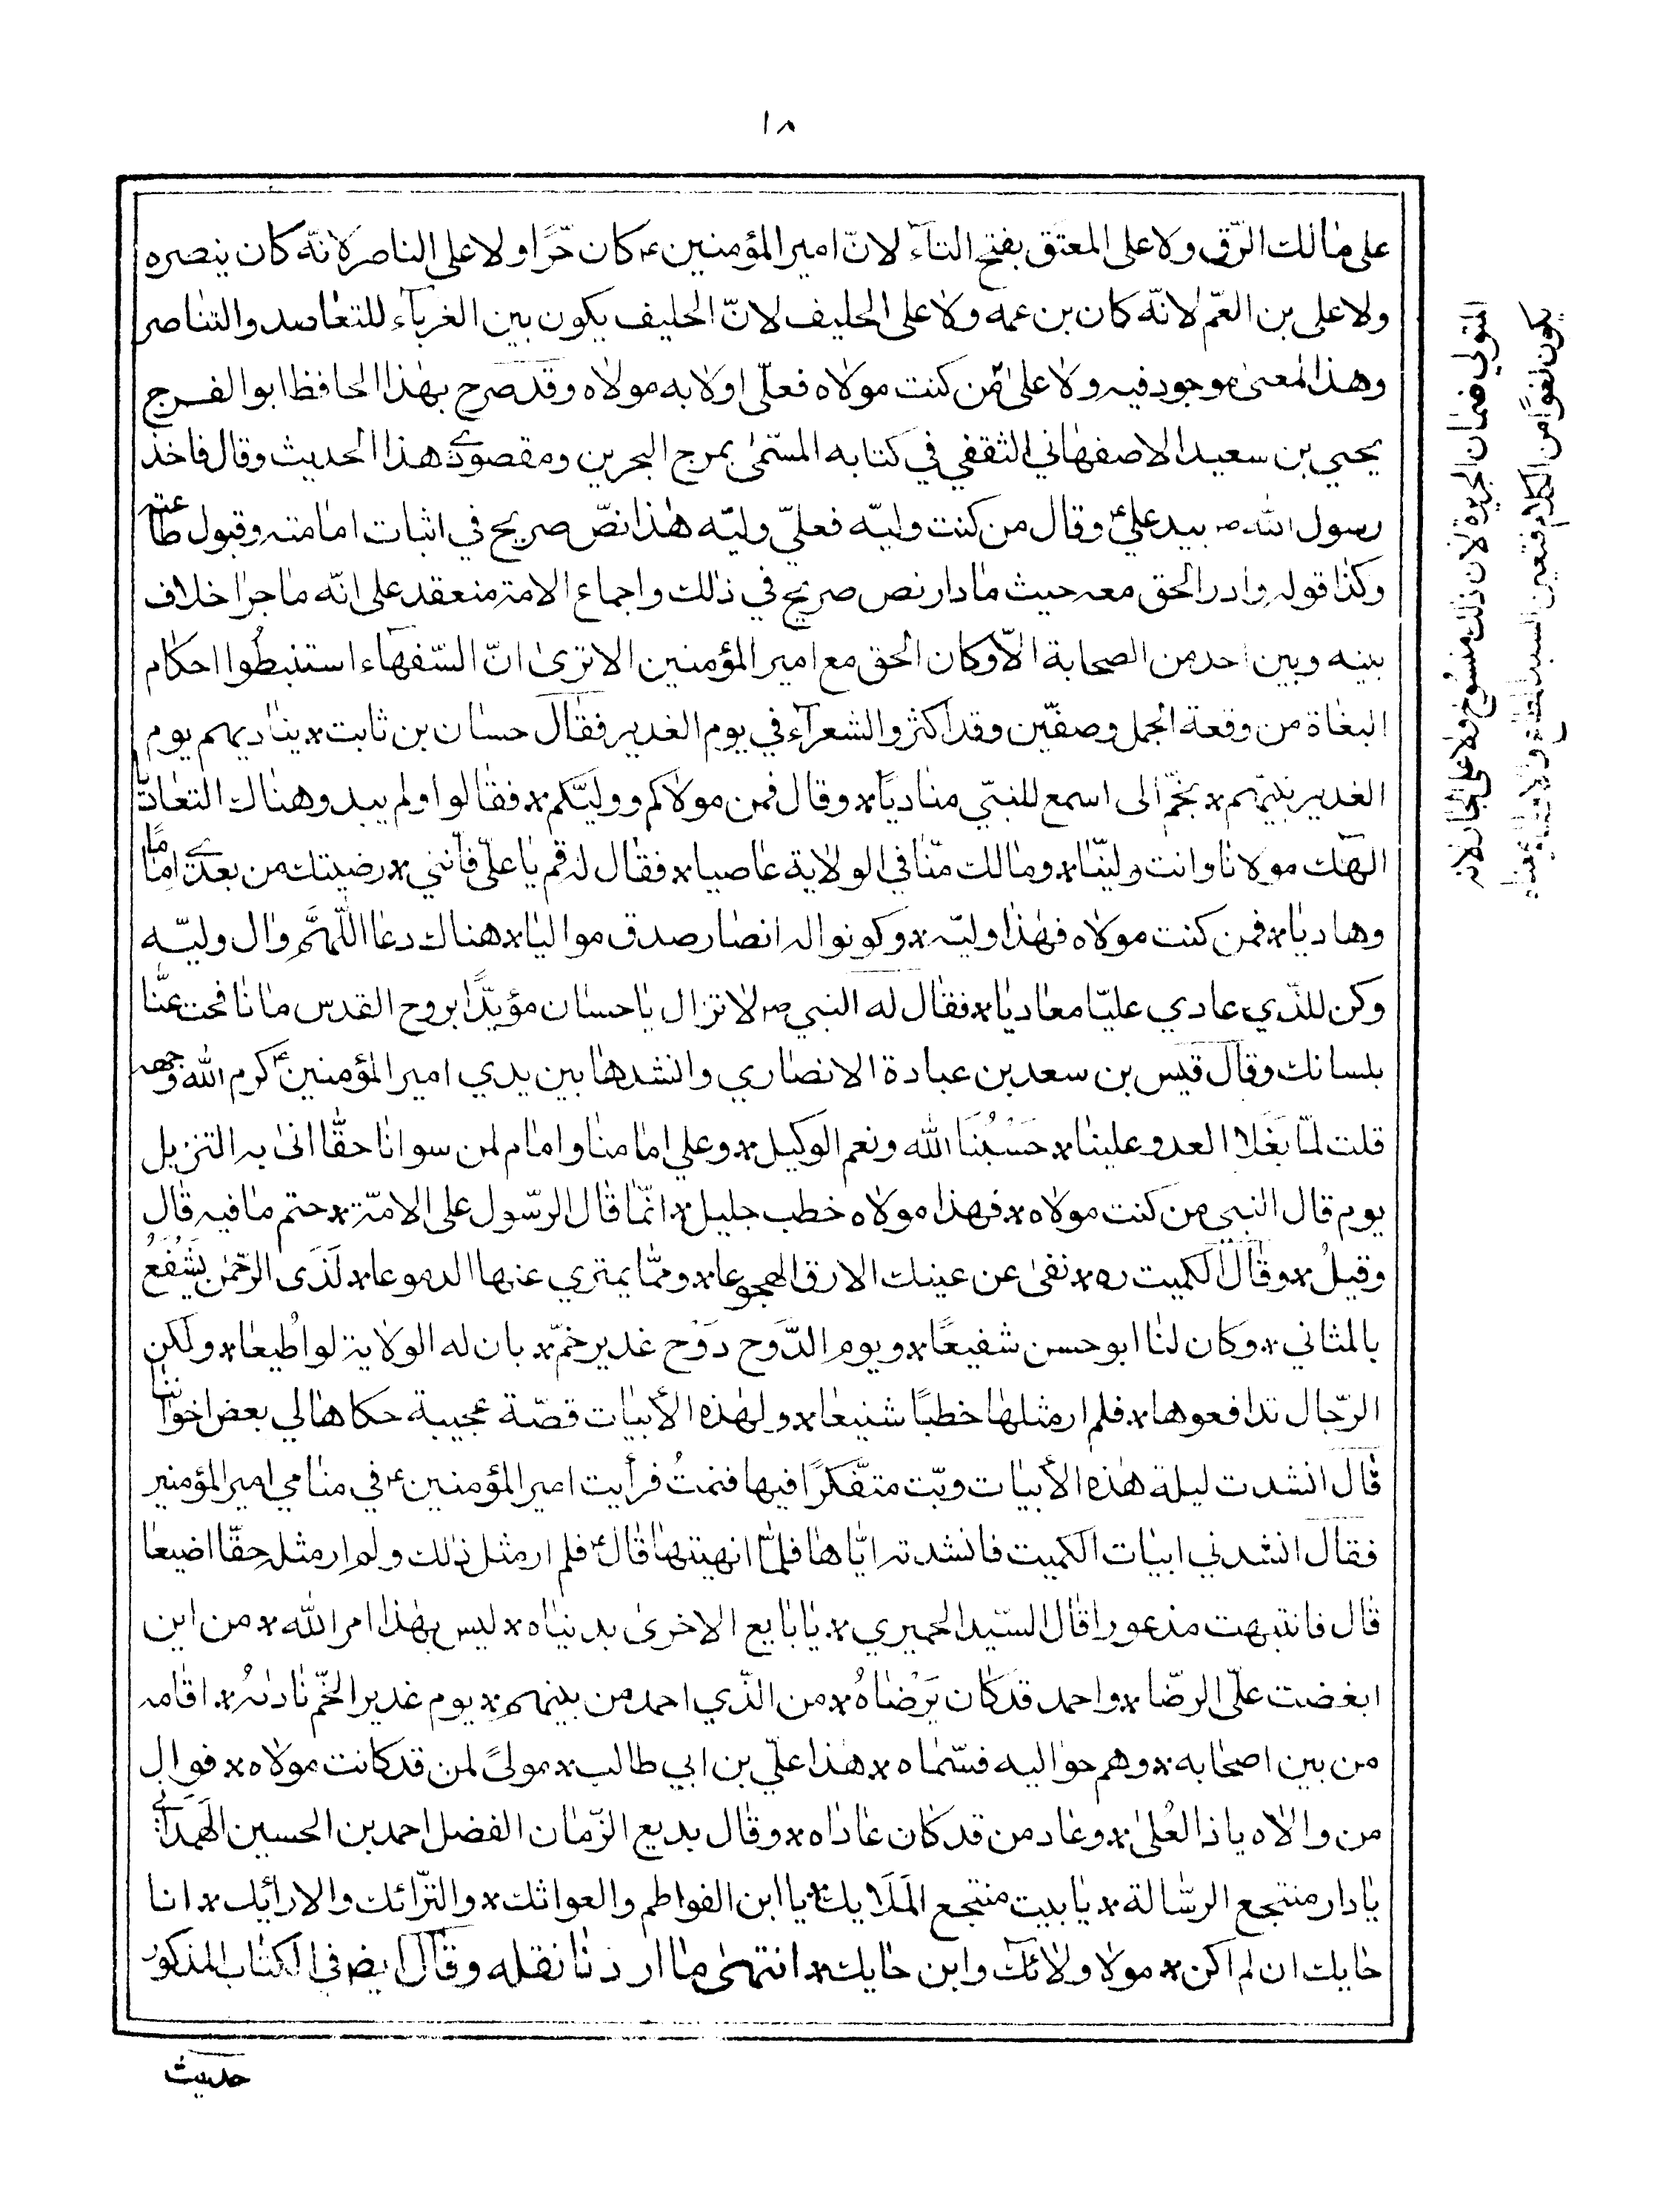 ١٨
على مالك الرّق ولا على المعتق بفتح التآء لانّ امير المؤمنين ع كان حّرًا ولا على الناصر لانّه كان ينصره
ولا على بن العّم لانّه كان بن عمه ولا على الحليف لانّ الحليف يكون بين الغربآء للتعاضد والتناصر
وهذا المعنى موجود فيه ولا على من كنت مولاه فعلّي اولا به مولاه وقد صرح بهذا الحافظ ابو الفرج
يحيي بن سعيد الاصفهاني الثقفي في كتابه المسّمى بمرج البحرين ومقصودي هذا الحديث وقال فاخذ
رسول الله ص بيد علي ع وقال من كنت وليّه فعليّ وليّه هذا نصّ صريح في اثبات امامته وقبول طاعته
وكذا قوله وادر الحق معه حيث ما دار نص صريح في ذلك واجماع الامة منعقد على انّه ما جرا خلاف
بينه وبين احد من الصحابة الّا وكان الحق مع امير المؤمنين الا ترى انّ السّفهاء استنبطُوا احكام
البغاة من وقعة الجمل وصفّين وقد اكثر والشعرآء في يوم الغدير فقال حسان بن ثابت * يناديهم يوم
الغدير نبيّهم * بخّم الى اسمع للنبّي مناديًا * وقال فمن مولاكم ووليّكم * فقالوا ولم يبدوهناك التعاديّا
الهٓك مولانا وانت وليّنا * ومالك منّا في الولاية عاصيا * فقال له قم يا علّي فانّني * رضيتك من بعدي امامًا
وهاديا * فمن كنت مولاه فهذا وليّه * وكونوا له انصار صدق مواليا * هناك دعا اللّهمَّ وال وليّه
وكن للذّي عادي عليّا معاديا * فقال له النبي ص لا تزال يا حسان مؤيدًّا بروح القدس ما نافحت عنّا
بلسانك وقال قيس بن سعد بن عبادة الانصاري وانشدها بين يدي امير المؤمنين ع كرم الله وجهه
قلت لمّا بغلا العدو علينا * حَسْبُنَا الله ونعم الوكيل * وعلي امامنا وامام لمن سوانا حقّا اتى به التنزيل
يوم قال النبي من كنت مولاه * فهذا مولاه خطب جليل * انّما قال الرّسول على الامّة * حتم ما فيه قال
وقيلُ * وقال الكميت ره * نفى عن عينك الارق الهجوعا * وممّا يمتري عنها الدموعا * لَدَى الرحّمٰن يَشْفَعُ
بالمثاني * وكان لنا ابو حسن شفيعًا * ويوم الدَّوح دَوْح غدير خمّ * بان له الولاية لو اُطيعا * ولكن
الرّجال تدافعوها * فلم ار مثلها خطبًا شنيعا * ولهذه الأبيات قصّة عجيبة حكاها لي بعض اخواننا
قال انشدت ليلة هذه الأبيات وبّت متفّكرًا فيها فنمتُ فرأيت امير المؤمنين ع في منامي امير المؤمنير
فقال انشدني ابيات الكميت فانشدته ايّاها فلمّا انهيتها قال ع فلم ار مثل ذلك ولم ار مثله حقّا اضيعا
قال فانتبهت مذعورا قال السّيد الحميري * يا بايع الاخرى بدنياه * ليس بهذا امر الله * من اين
ابغضت علّي الرضّا * واحمد قد كان يَرْضاهُ * من الذّي احمد من بينهم * يوم غدير الخّم نادىهُ * اقامه
من بين اصحابه * وهم حواليه فسّماه * هذا علّي بن ابي طالب * مولىً لمن قد كانت مولاه * فوال
من والاه يا ذا لعُلى * وعاد من قد كان عاداه * وقال بديع الزّمان الفضل احمد بن الحسين الهَمَداني
يا دار منتجع الرسّالة * يا بيت منتجع المَلَايك * يا ابن الفواطم والعواثك * والترّائك والارأيك * انا
حايك ان لم اكن * مولا ولائك وابن حايك * انتهى ما اردنا نقله وقال ايض في الكتاب المذكور
حديث
المتولي ضمان الجريرة لان ذلك منسُوخ ولا على الجار لانه
يكون لغوًا من الكلام فتعين السيد المطاع